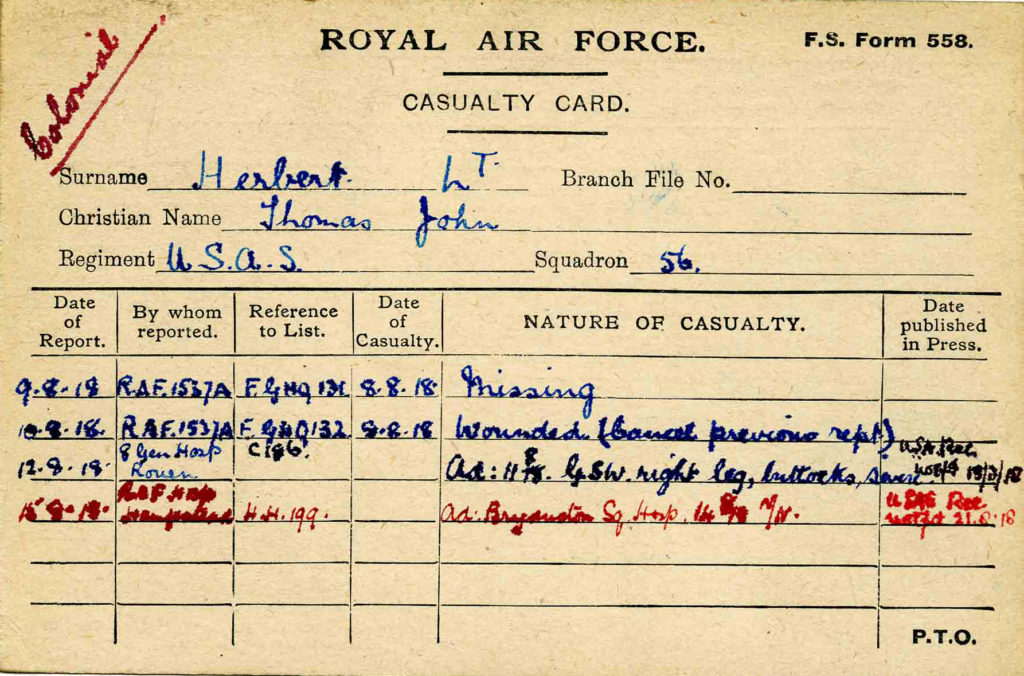 Colonial
ROYAL AIR FORCE.
F.S. Form 558.
CASUALTY CARD.
Surname Herbert. LT.
Branch File No.
Christian Name Thomas John
Regiment U.S.A.S.
Squadron 56.
Date of Report.
By whom reported.
Reference to List.
Date of Casualty.
NATURE OF CASUALTY.
Date published in Press.
9.8.18 R.A.F. 1537A F.GHQ 131 8.8.18 Missing
10.8.18. R.A.F. 1537A F.GHQ 132 8.8.18 Wounded. (Cancel previous rept)
12.8.18 8 Gen Hosp Rouen C186. Ad: 11/8. G.S.W. right leg, buttocks, severe USA Rec
15.8.18. RAF Hosp Hampstead H.H. 199. Ad: Bryanston Sq. Hosp. 14/8/18 USAS Rec 21.8.18
P.T.O.